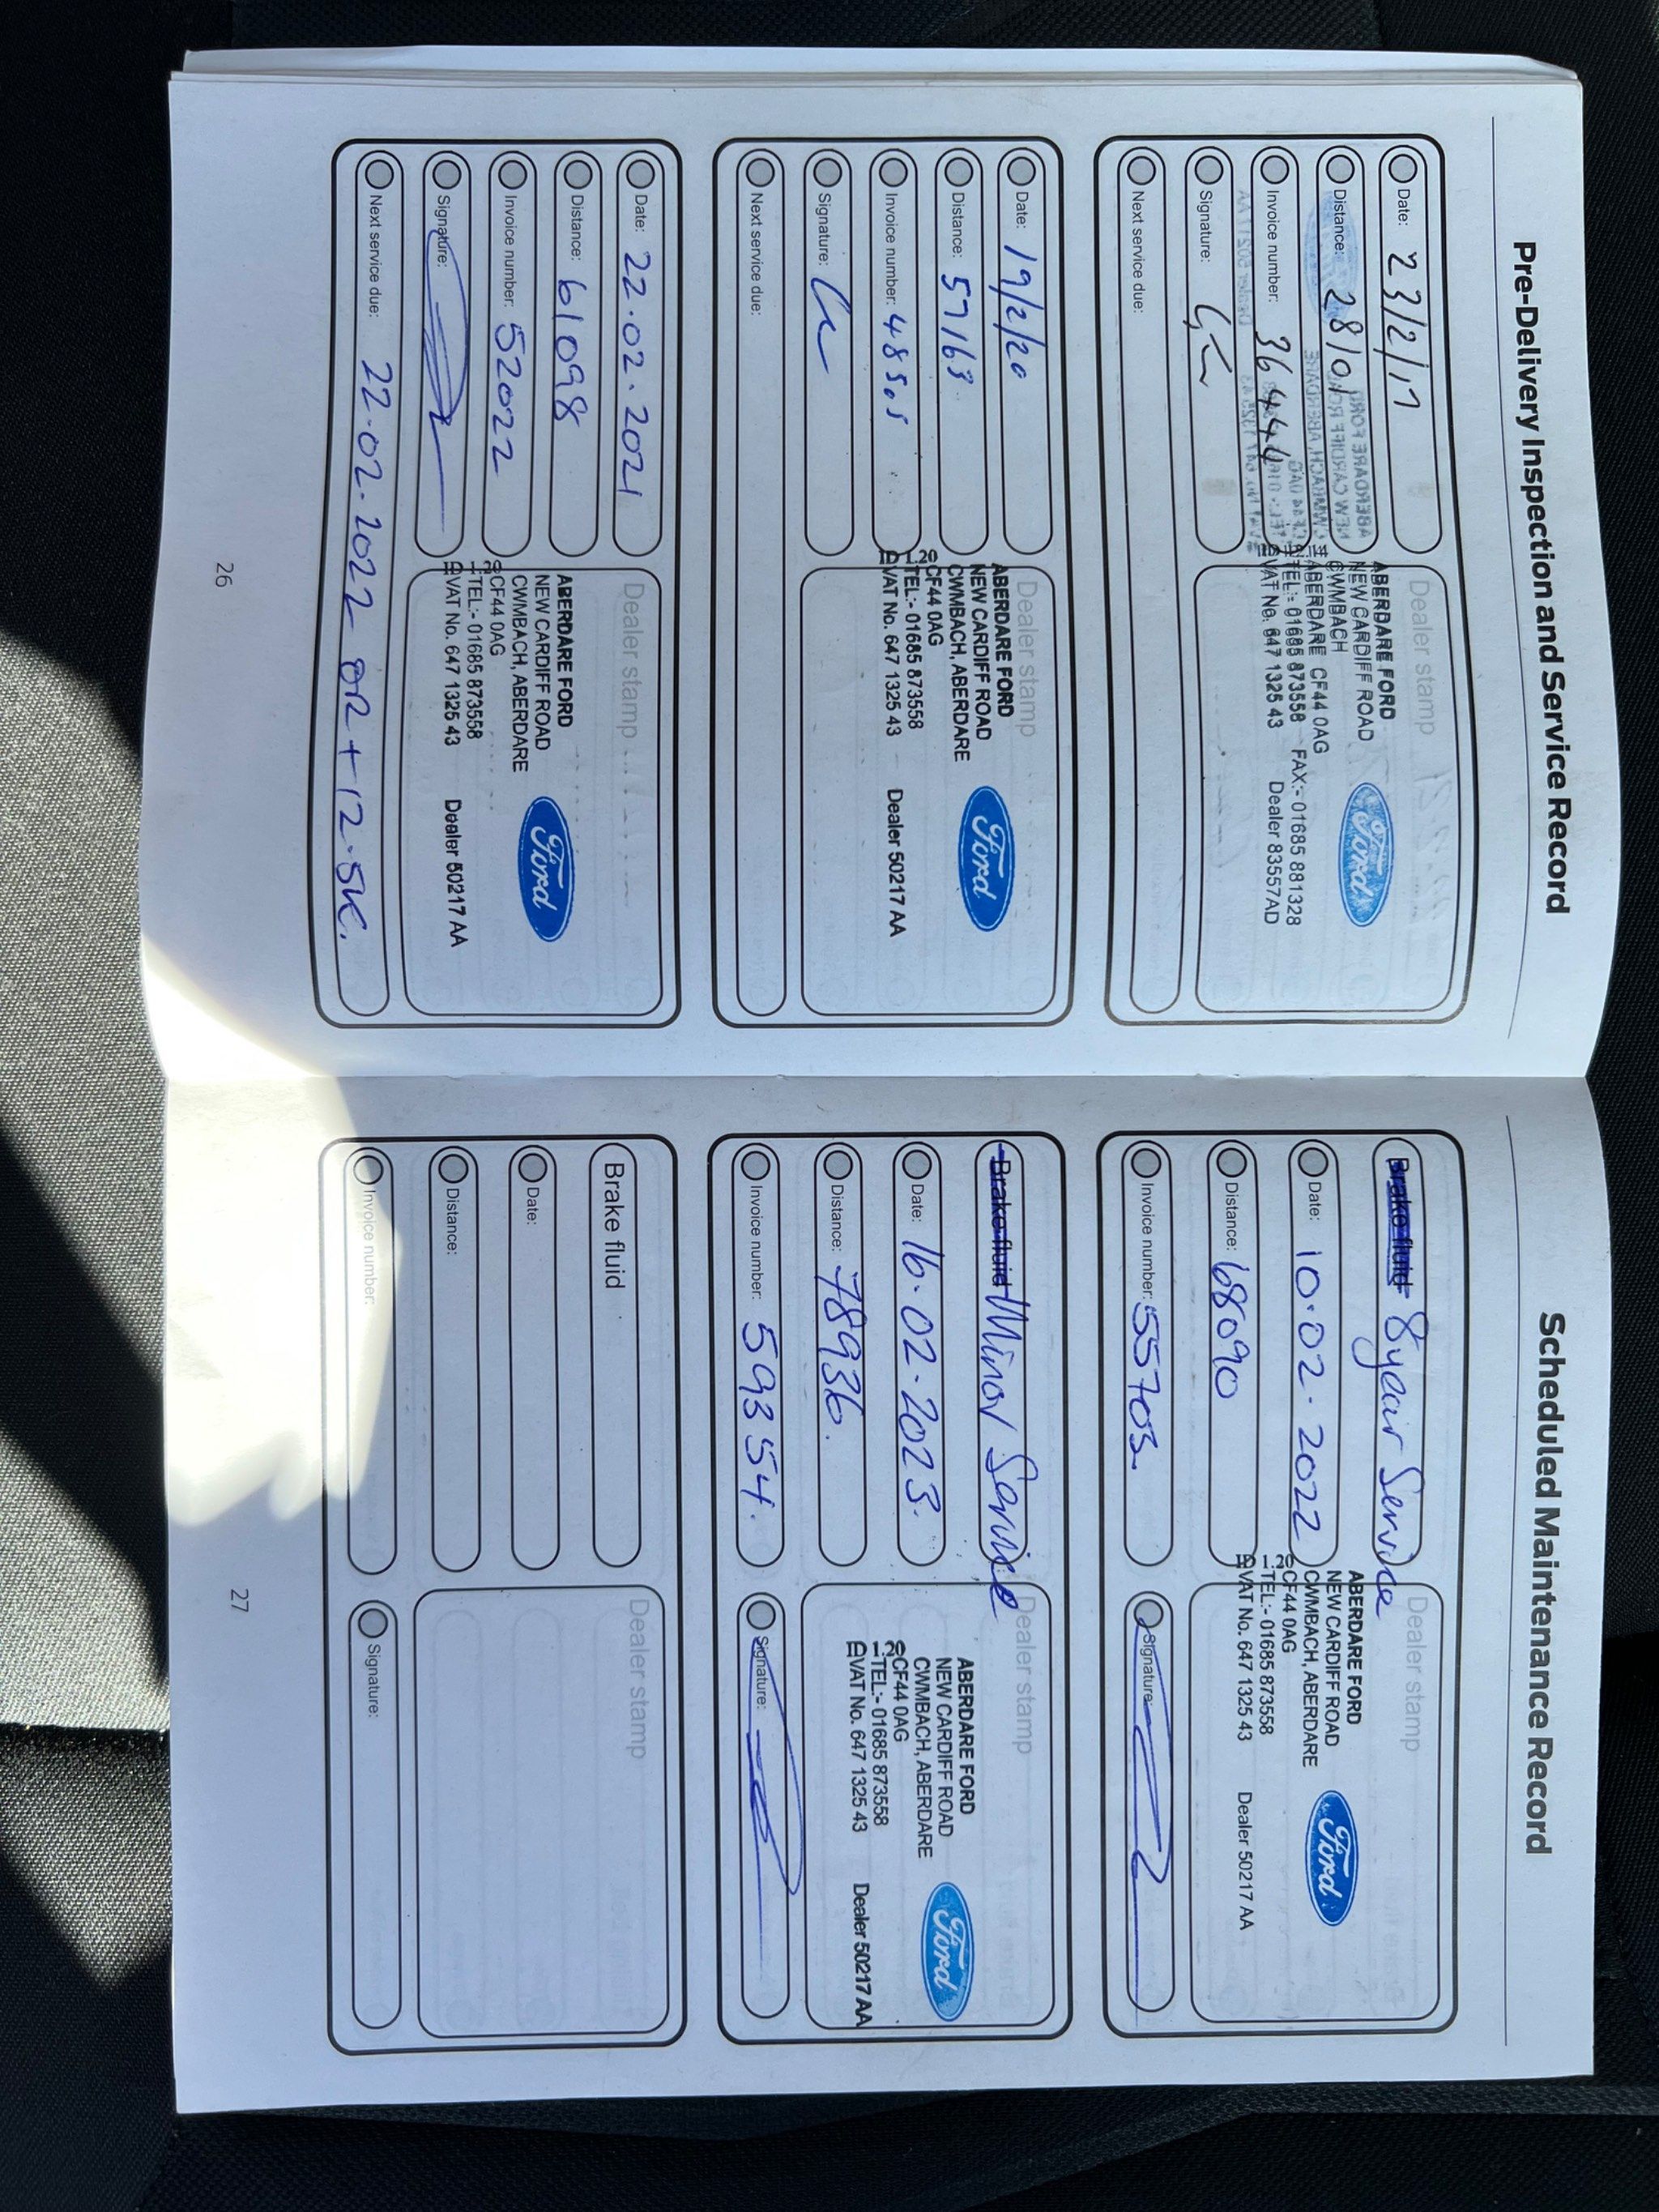 Pre-Delivery Inspection and Service Record
Date: 23/2/17
Distance: 28101
Invoice number: 36444
Signature:
Next service due:
Dealer stamp
ABERDARE FORD
NEW CARDIFF ROAD
CWMBACH
ABERDARE CF44 0AG
TEL:- 01685 873558 FAX:- 01685 881328
VAT No. 647 1325 43 Dealer 83557AD
Ford
Date: 19/2/20
Distance: 57163
Invoice number: 48505
Signature:
Next service due:
Dealer stamp
ABERDARE FORD
NEW CARDIFF ROAD
CWMBACH, ABERDARE
CF44 0AG
TEL:- 01685 873558
VAT No. 647 1325 43 Dealer 50217 AA
Ford
Date: 22.02.2021
Distance: 61098
Invoice number: 52022
Signature:
Next service due: 22.02.2022 OR +12.5K.
Dealer stamp
ABERDARE FORD
NEW CARDIFF ROAD
CWMBACH, ABERDARE
CF44 0AG
TEL:- 01685 873558
VAT No. 647 1325 43 Dealer 50217 AA
Ford
26
Scheduled Maintenance Record
Brake fluid 8 year Service
Date: 10.02.2022
Distance: 68090
Invoice number: 55703.
Dealer stamp
ABERDARE FORD
NEW CARDIFF ROAD
CWMBACH, ABERDARE
CF44 0AG
TEL:- 01685 873558
VAT No. 647 1325 43 Dealer 50217 AA
Ford
Signature:
Brake fluid Minor Service
Date: 16.02.2023.
Distance: 78936.
Invoice number: 59354.
Dealer stamp
ABERDARE FORD
NEW CARDIFF ROAD
CWMBACH, ABERDARE
CF44 0AG
TEL:- 01685 873558
VAT No. 647 1325 43 Dealer 50217 AA
Ford
Signature:
Brake fluid
Date:
Distance:
Invoice number:
Dealer stamp
Signature:
27